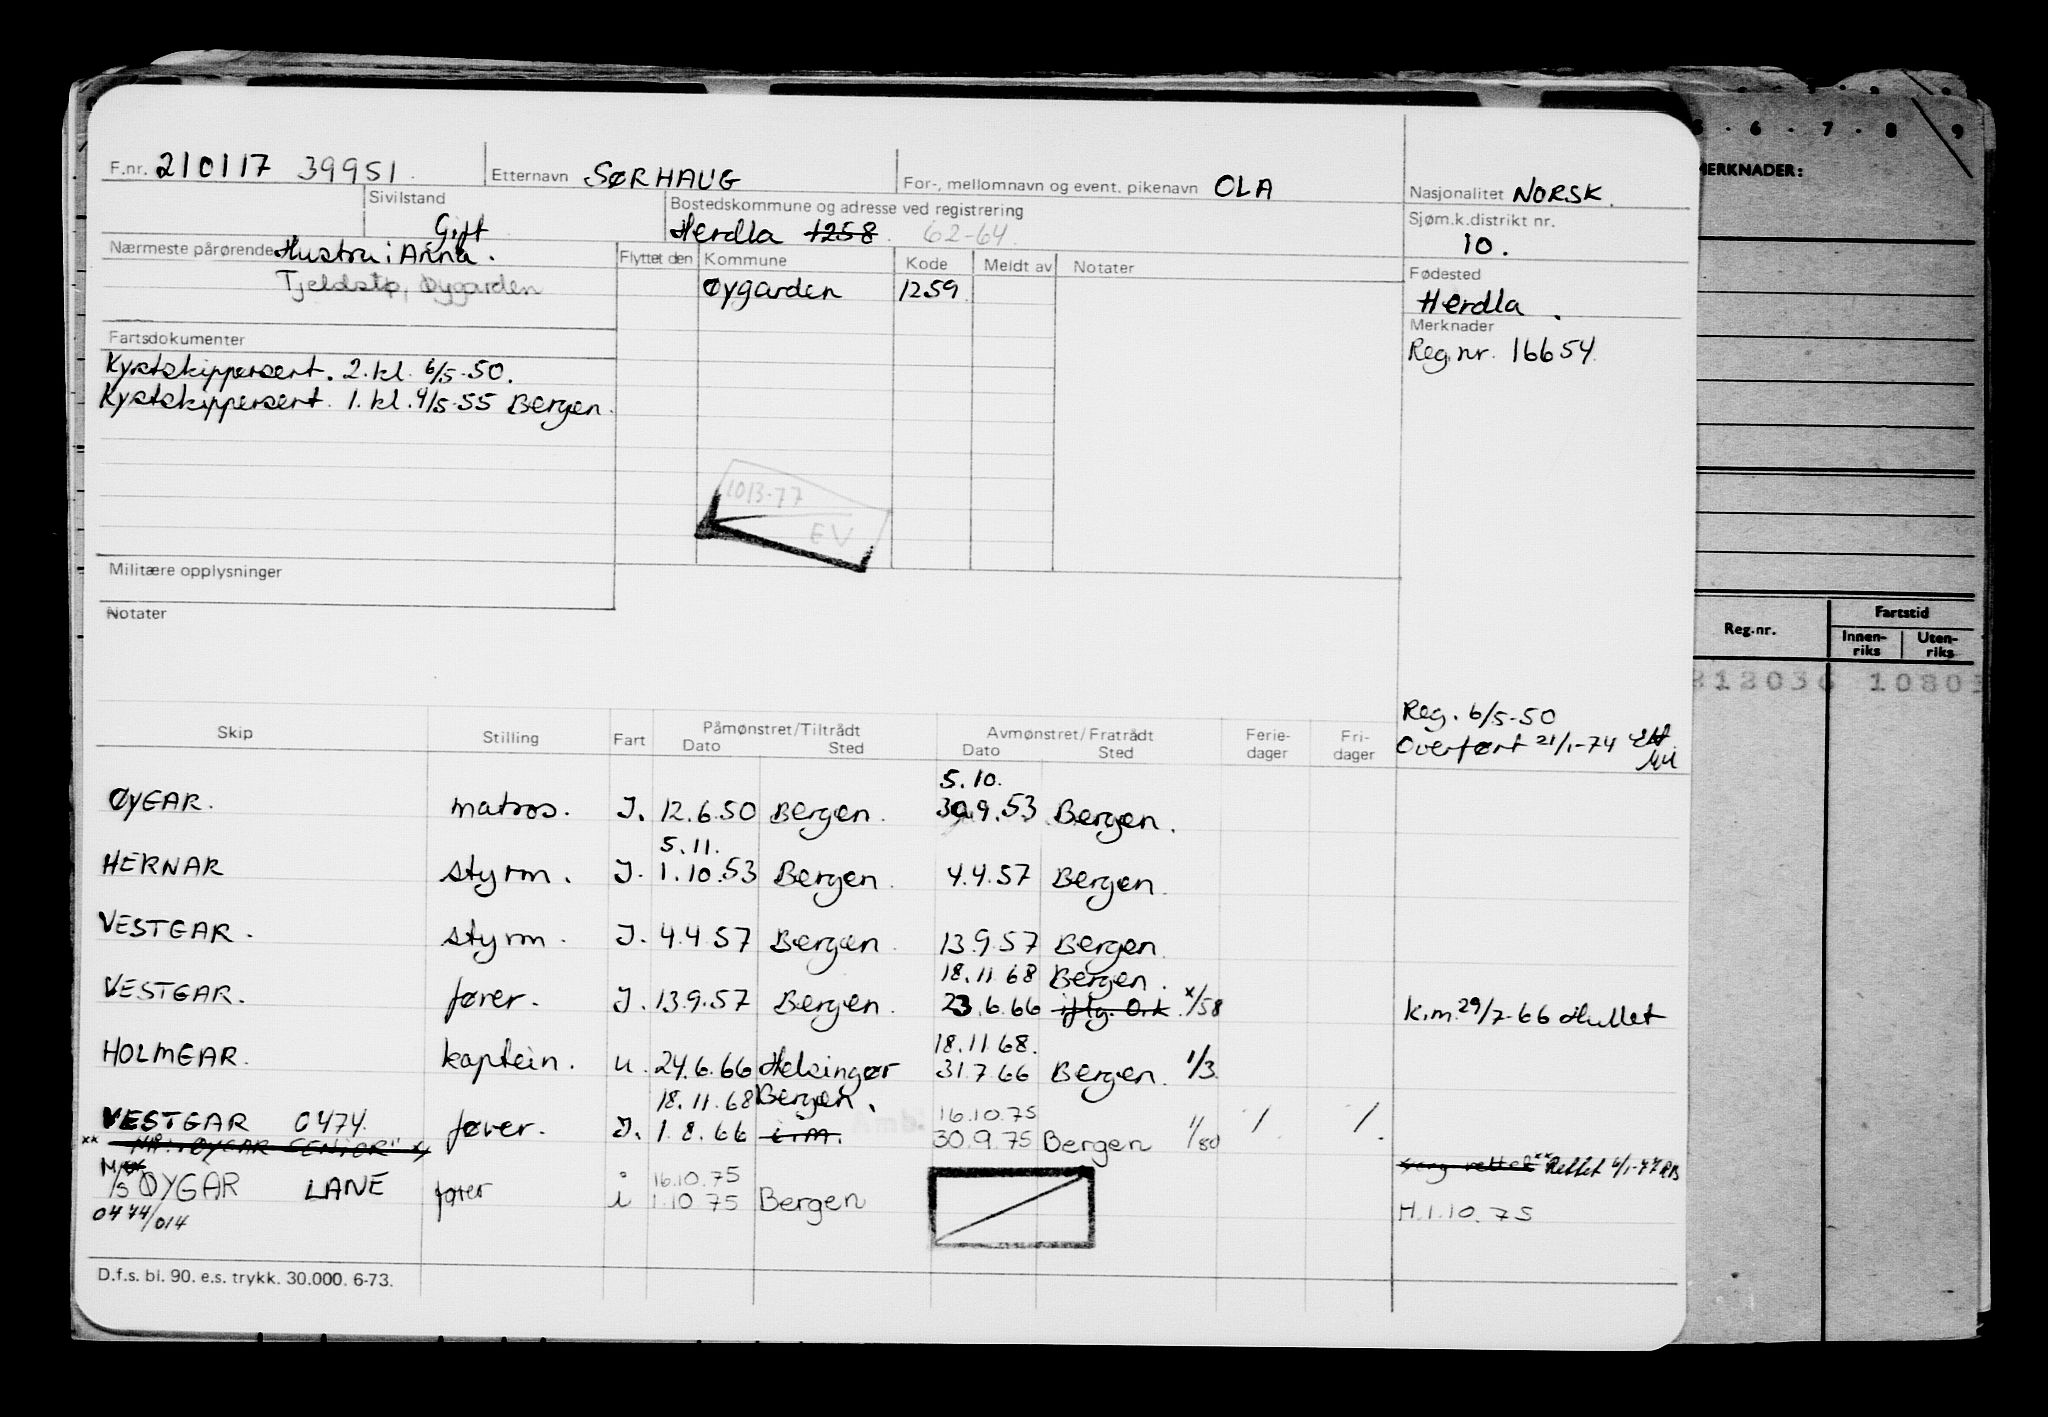 F.nr. 210117 39951. Etternavn SØRHAUG For-, mellomnavn og event. pikenavn OLA Nasjonalitet NORSK.
Sivilstand Gift Bostedskommune og adresse ved registrering Herdla 1258. 62-64. Sjøm.k.distrikt nr. 10.
Nærmeste pårørende Hustru: Anna.
Tjeldstø, Øygarden
Flyttet den Kommune Kode Meldt av Notater
Øygarden 1259
Fødested
Herdla.
Merknader
Reg.nr. 16654.
Fartsdokumenter
Kystskippersert. 2.kl. 6/5-50.
Kystskippersert. 1.kl. 4/5-55 Bergen.
1013-77
EV
Militære opplysninger
Notater
Reg. 6/5-50
Overført 21/1-74
Skip Stilling Fart Påmønstret/Tiltrådt Dato Sted Avmønstret/Fratrådt Dato Sted Ferie-dager Fri-dager
5.10.
ØYGAR. matros. I. 12.6.50 Bergen. 30.9.53 Bergen.
5.11.
HERNAR styrm. I. 1.10.53 Bergen. 4.4.57 Bergen.
VESTGAR. styrm. I. 4.4.57 Bergen. 13.9.57 Bergen.
18.11.68 Bergen.
VESTGAR. fører. I. 13.9.57 Bergen. 23.6.66 iflg. O.k. x/58 k.m. 29/7-66 Hullet
18.11.68.
HOLMGAR. kaptein. u. 24.6.66 Helsingør 31.7.66 Bergen. 1/3.
18.11.68 Bergen. 16.10.75
VESTGAR 0474. fører. I. 1.8.66 i.m. 30.9.75 Bergen 1/80 / /.
xx NÅ: "ØYGAR SENIOR" xx
rettet xx Rettet 6/1-77 RB
16.10.75
M/S ØYGAR LANE fører i 1.10 75 Bergen H.1.10.75
0474/014
D.f.s. bl. 90. e.s. trykk. 30.000. 6-73.
5 · 6 · 7 · 8 9
MERKNADER:
Reg.nr. Fartstid
Innen-riks Uten-riks
212036 10801